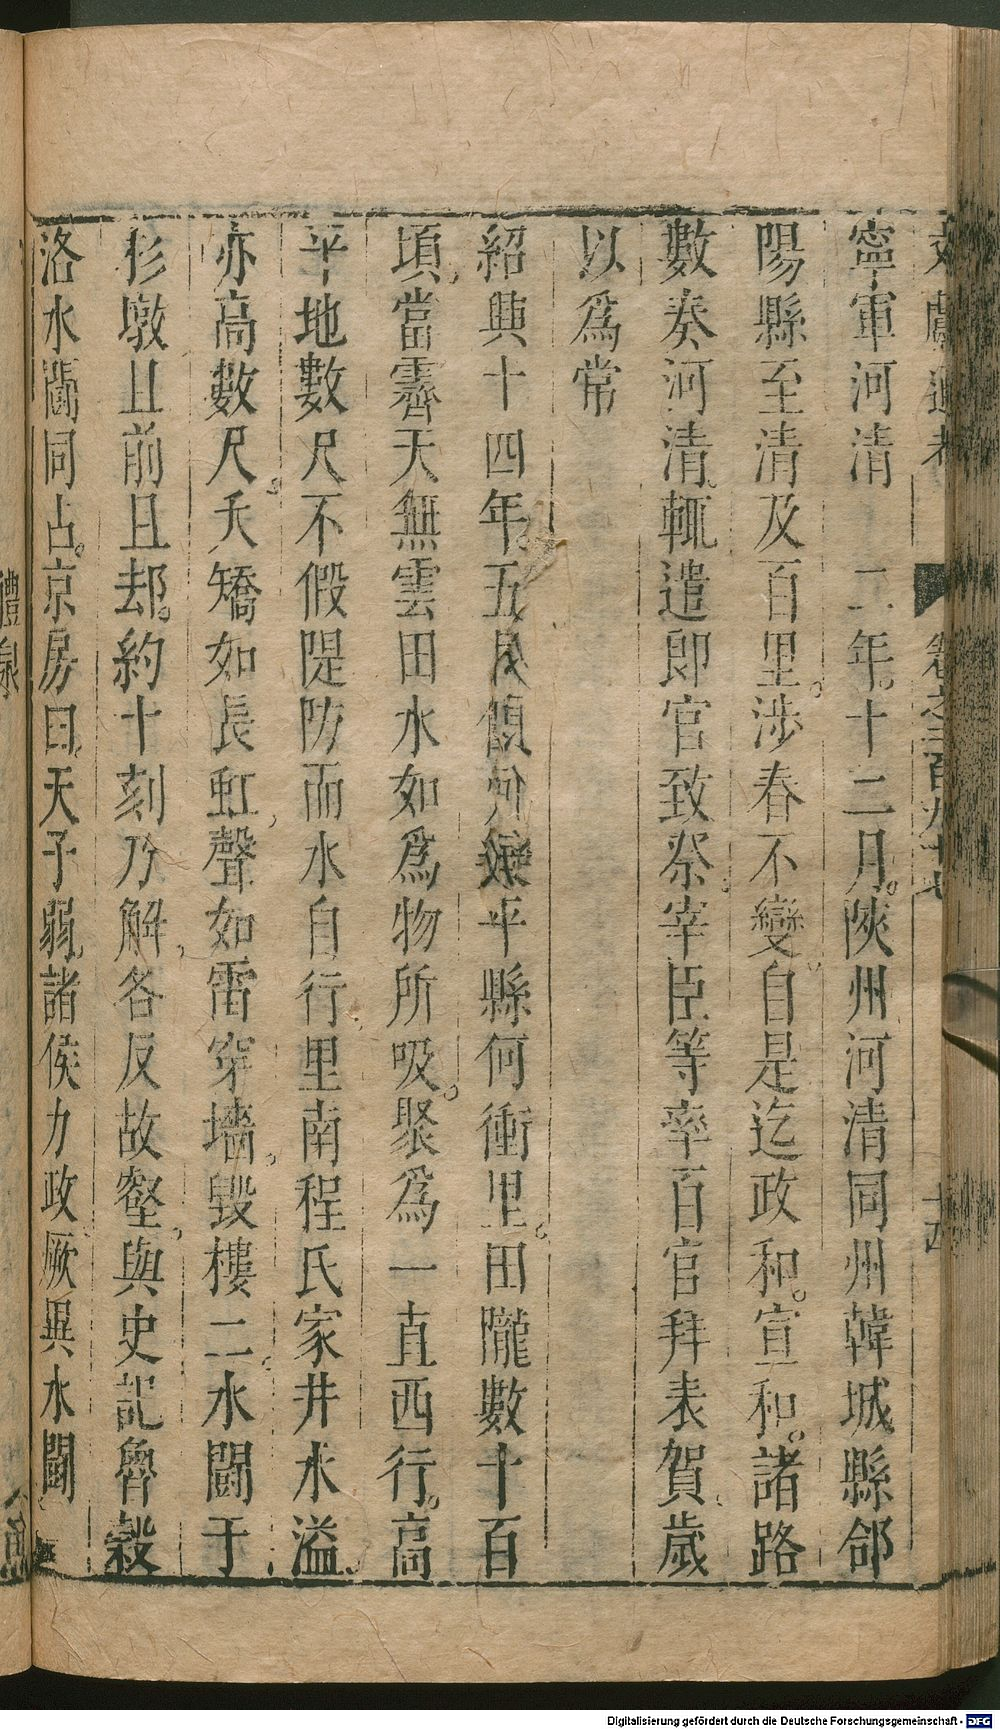 文獻通考 卷之二百九十七 十四
寧軍河清 二年。十二月。陝州河清同州韓城縣郃
陽縣至清及百里。涉春不變。自是迄政和。宣和。諸路
數奏河清。輒遣郎官致祭。宰臣等率百官拜表賀。歲
以爲常
紹興十四年。五月 平縣何衝里。田隴數十百
頃。當霽天無雲田水如爲物所吸。聚爲一直西行。高
平地數尺不假隄防而水自行里南程氏家井水溢。
亦高數尺。夭矯如長虹。聲如雷穿墻。毀樓。二水鬭于
杉墩且前且却。約十刻乃解。各反故壑。與史記魯穀
洛水鬭同占。京房曰。天子弱。諸侯力政。厥異水鬭
醴泉
Digitalisierung gefördert durch die Deutsche Forschungsgemeinschaft - DFG